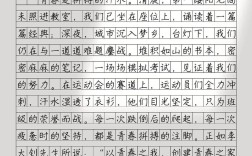 未照进教室，我们已坐在座位上，诵读着一篇
篇经典，深夜，城市沉入梦乡，台灯下，我们
仍在与一道道难题鏖战，堆积如山的书本，密
密麻麻的笔记，一场场模拟考试，见证着我们
的努力。在运动会的赛道上，运动员们全力
冲刺，汗水湿透了衣衫，他们目光坚定，只为班
级的荣誉而战。每一次跌倒后的爬起，每一次
疲惫时的坚持，都是青春拼搏的注脚。正如李
大钊先生所说："以青春之我，创建青春之家